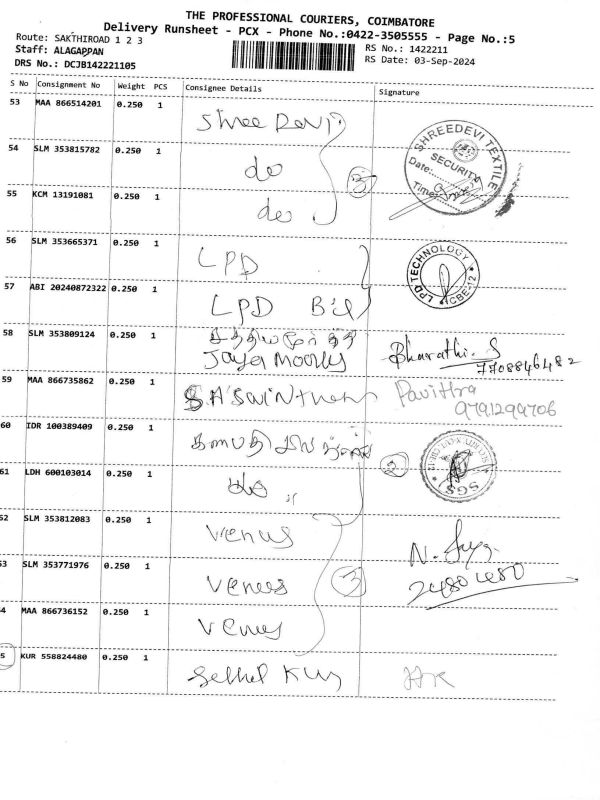 THE PROFESSIONAL COURIERS, COIMBATORE
Delivery Runsheet - PCX - Phone No.:0422-3505555 - Page No.:5
Route: SAKTHIROAD 1 2 3
RS No.: 1422211
Staff: ALAGAPPAN
RS Date: 03-Sep-2024
DRS No.: DCJB142221105
S No Consignment No Weight PCS Consignee Details Signature
53 MAA 866514201 0.250 1 Shree Devi
SHREEDEVI TEXTILE
SECURITY
Date:
Time:
54 SLM 353815782 0.250 1 do
3
55 KCM 13191081 0.250 1 do
56 SLM 353665371 0.250 1 LPD
LPD TECHNOLOGY
CBE-12
57 ABI 20240872322 0.250 1 LPD
58 SLM 353809124 0.250 1
Jaya Moorly Bharathi. S
7708846482
59 MAA 866735862 0.250 1 Pavithra
9791299706
60 IDR 100389409 0.250 1
2
SGS
61 LDH 600103014 0.250 1
62 SLM 353812083 0.250 1 Venus
63 SLM 353771976 0.250 1 Venus
3
64 MAA 866736152 0.250 1 Venus
65 KUR 558824480 0.250 1